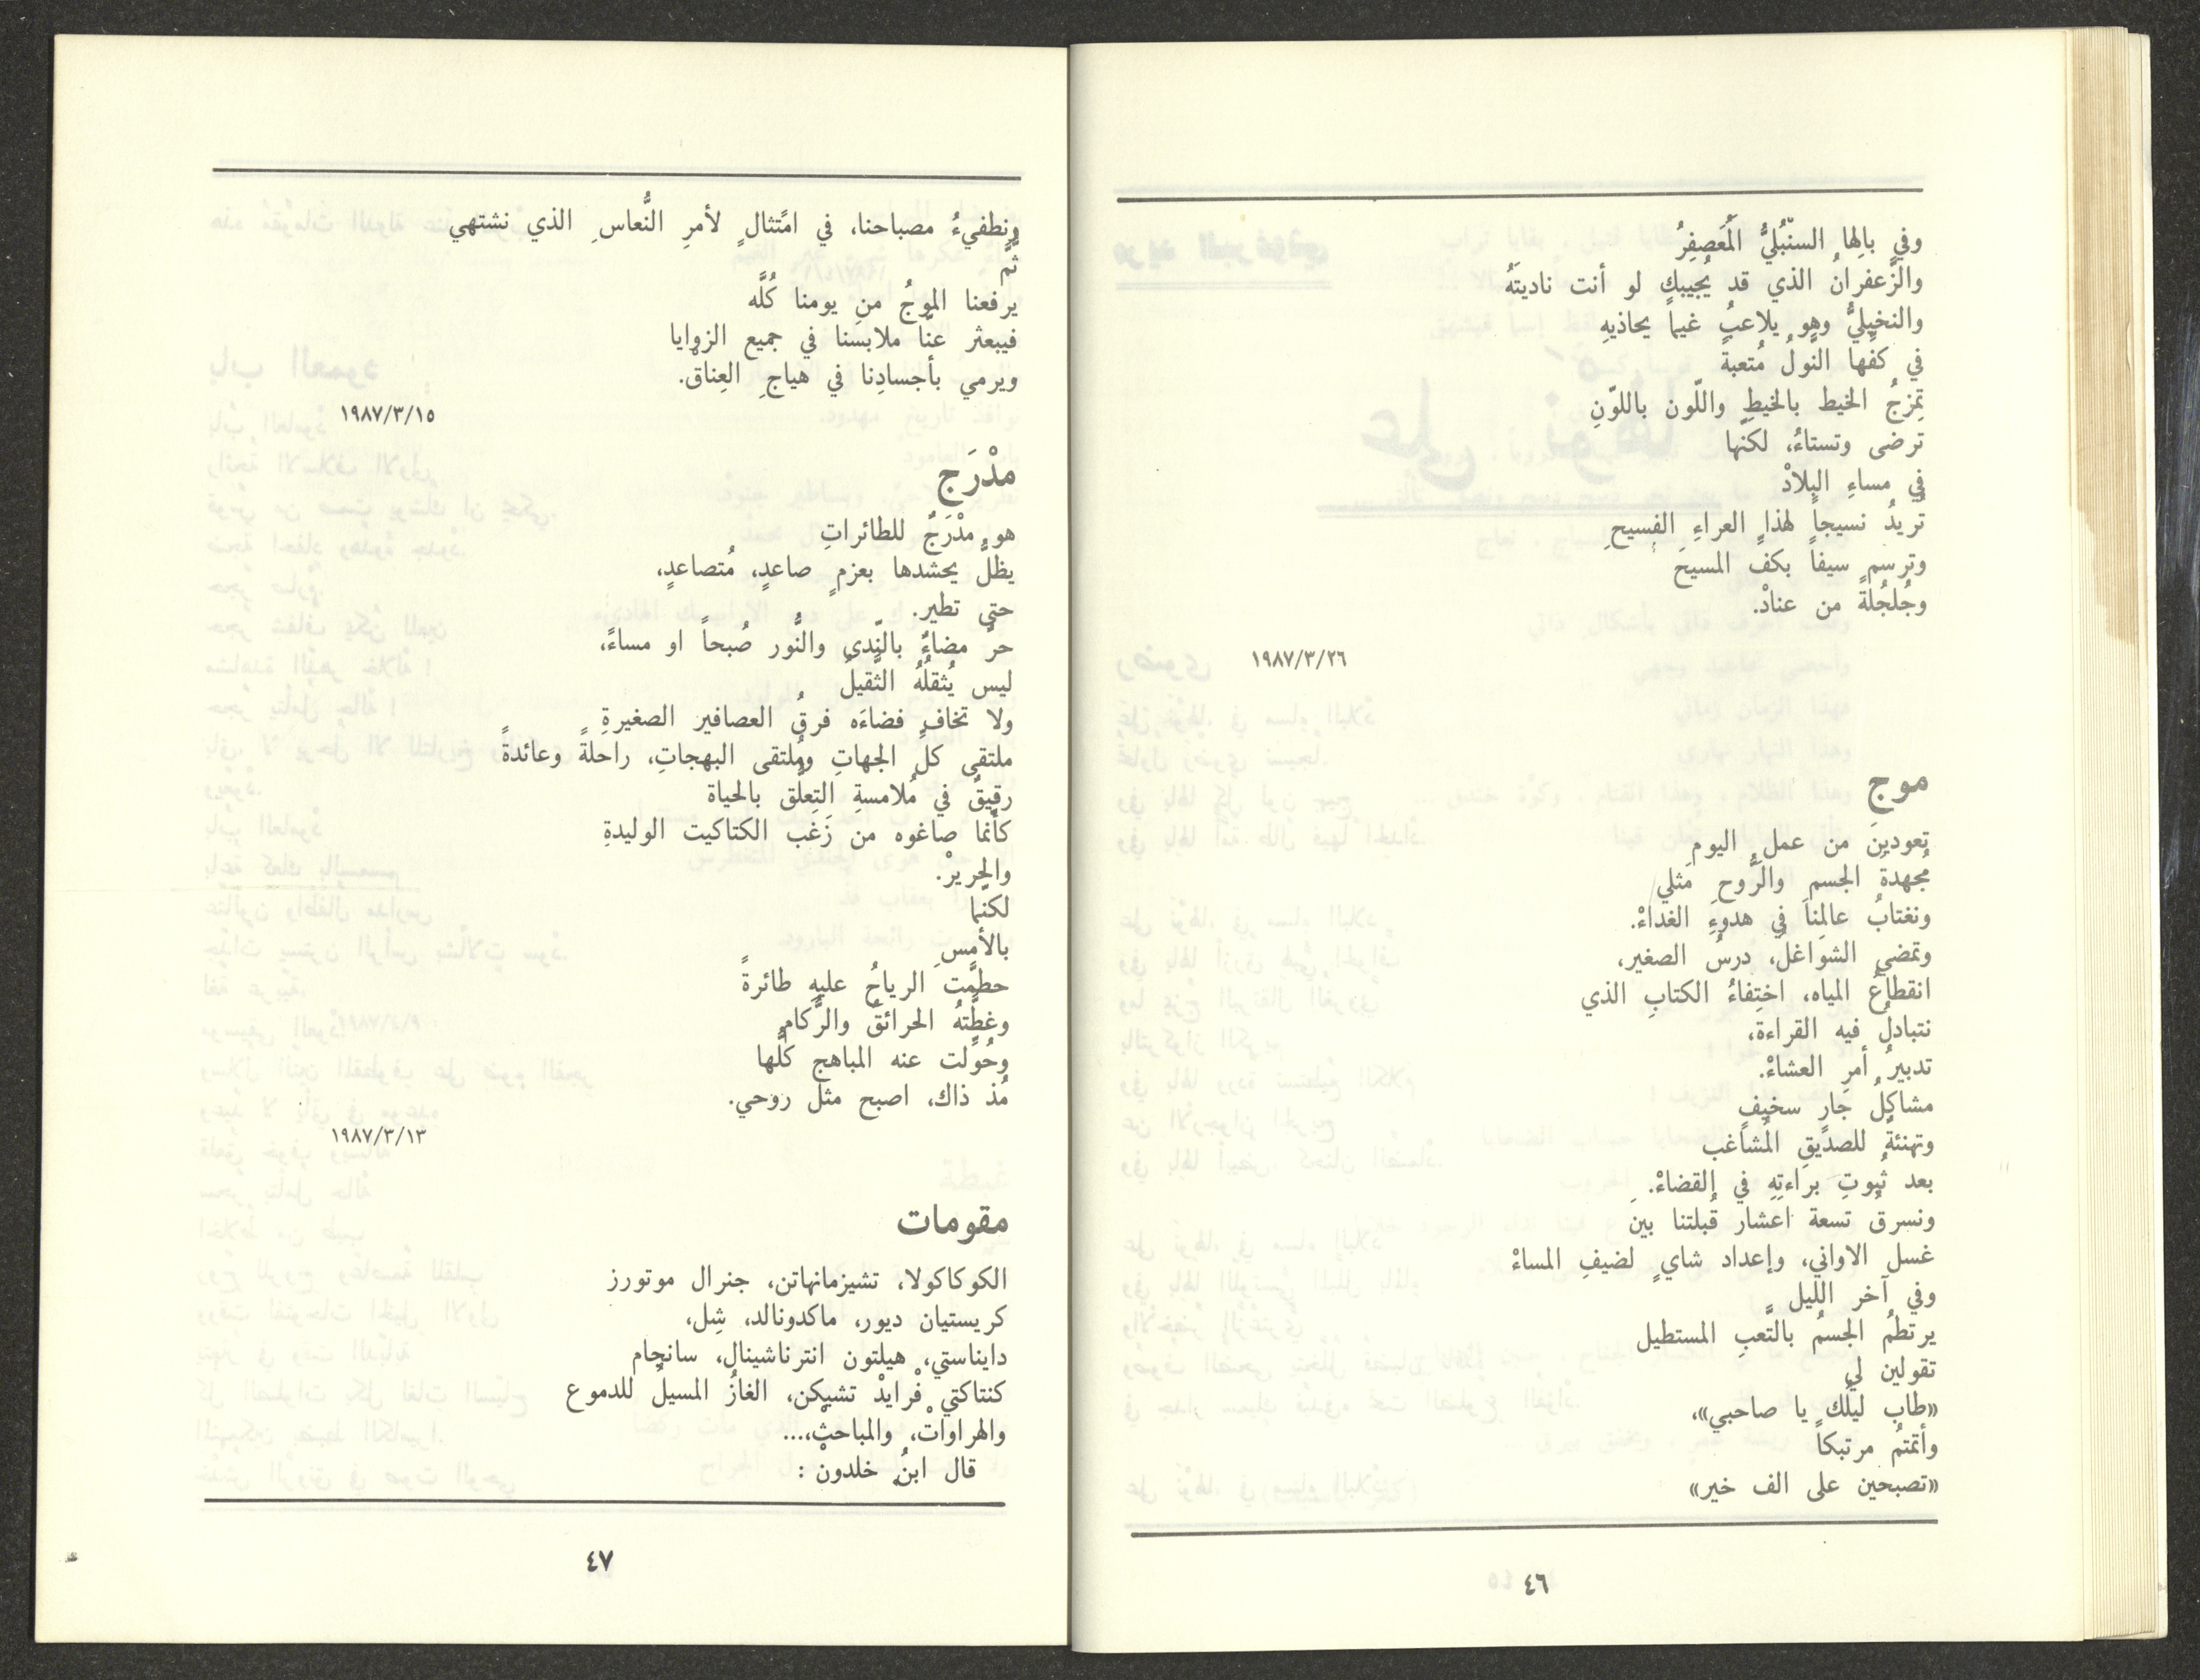 وفي بالِها السنّبُليُّ الْمُعَصفِرُ
والزَّعفرانُ الذي قد يُجيبك لو أنت ناديتَهُ
والنخيليُّ وهو يلاعبُ غيماً يحاذيهِ
في كفِّها النَّولُ مُتعبةً
تمِزجُ الخيط بالخيطِ واللّون باللوّنِ
ترضى وتستاءُ، لكنّها
في مساءِ البلادْ
تُريدُ نسيجاً لهذا العراءِ الفسيحِ
وترسم سيفاً بكفِّ المسيحَ
وجُلجُلةً من عنادْ.
١٩٨٧/٣/٢٦
موج
تعودينَ من عمل اليوم
مُجهدةَ الجسم والرُّوح مَثلي
ونغتابُ عالمِنا في هدوءَِ الغداءْ.
وتمضي الشواغلُ، درسُ الصغير،
انقطاعُ المياه، اختِفاءُ الكتابِ الذي
نتبادل فيه القراءةَ،
تدبيرُ أمرِ العشاءْ.
مشاكلُ جَارٍ سخيفٍ
وتهنئةٌ للصدّيقِ المُشاغب
بعد ثُبوتِ براءتِهِ في القضاءْ.
ونسرق تسعة اعشار قُبلتنا بينَ
غسل الاواني، وإعداد شايٍ لضيفِ المساءْ
وفي آخر الليل
يرتطمُ الجسمُ بالتَّعبِ المستطيل
تقولين لي
«طاب ليلُك يا صاحبي»،
وأتمتمُ مرتبكاً
«تصبحين على الف خير»
٤٦
ونطفيءُ مصباحنا، في امْتثالٍ لأمرِ النُّعاسِ الذي نشتهي
ثُمَّ
يرفعنا الموجُ منِ يومنا كُلَّه
فيبعثر عنّا ملابسنا في جميع الزوايا
ويرمي بأجسادِنا في هياجِ العِناقْ.
١٩٨٧/٣/١٥
مدْرَج
هو مدْرَجٌ للطائراتِ
يظلُّ يحشدها بعزمٍ صاعدٍ، مُتصاعدٍ،
حتى تطير.
حرٌ مضاءٌ بالنّدى والنُّور صُبحاً او مساءً،
ليس يُثقلُهُ الثَّقيلُ
ولا تخاف فضاءَه فرقُ العصافير الصغيرةِ
ملتقى كلِّ الجهاتِ ومُلتقى البهجاتِ، راحلةً وعائدةً
رقيقٌ في مُلامسةِ التعلُّق بالحياة
كأنما صاغوه من زَغَب الكتاكيت الوليدةِ
والحريرْ.
لكنّما
بالأمسِ
حطمَّت الرياحُ عليهِ طائرةً
وغطَّتهُ الحرائقُ والرُّكام
وحُوِّلت عنه المباهج كلُّها
مُذ ذاك، اصبح مثلَ روحي.
١٩٨٧/٣/١٣
مقومات
الكوكاكولا، تشيزمانهاتن، جنرال موتورز
كريستيان ديور، ماكدونالد، شِل،
دايناستي، هيلتون انترناشينال، سانجام
كنتاكتي فْرايدْ تشيكن، الغازُ المسيلُ للدموع
والهراواتْ، والمباحثْ،...
قال ابنُ خلدونْ :
٤٧